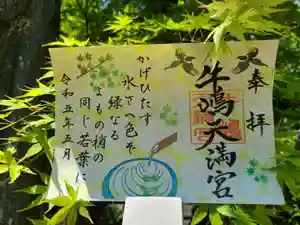 奉拝
牛嶋天満宮
かげひたす
水さへ色ぞ
緑なる
よもの梢の
同じ若葉に
令和五年五月